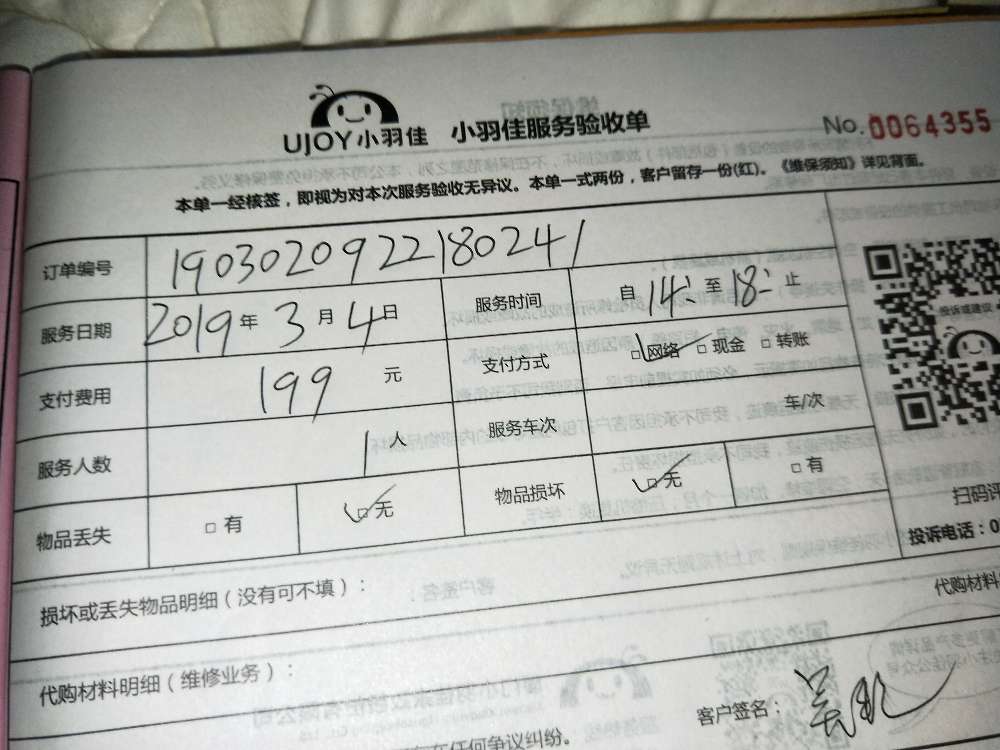 UJOY小羽佳 小羽佳服务验收单 No.0064355
本单一经核签，即视为对本次服务验收无异议。本单一式两份，客户留存一份(红)。《维保须知》详见背面。
订单编号 1903020922180241
服务日期 2019年3月4日 服务时间 自14:至18:止
支付费用 199元 支付方式 □网络 □现金 □转账
服务人数 1人 服务车次 车/次
物品丢失 □有 □无 物品损坏 □无 □有
投诉或建议
扫码评
投诉电话：0
损坏或丢失物品明细（没有可不填）：
代购材料
代购材料明细（维修业务）：
客户签名：
在任何争议纠纷。